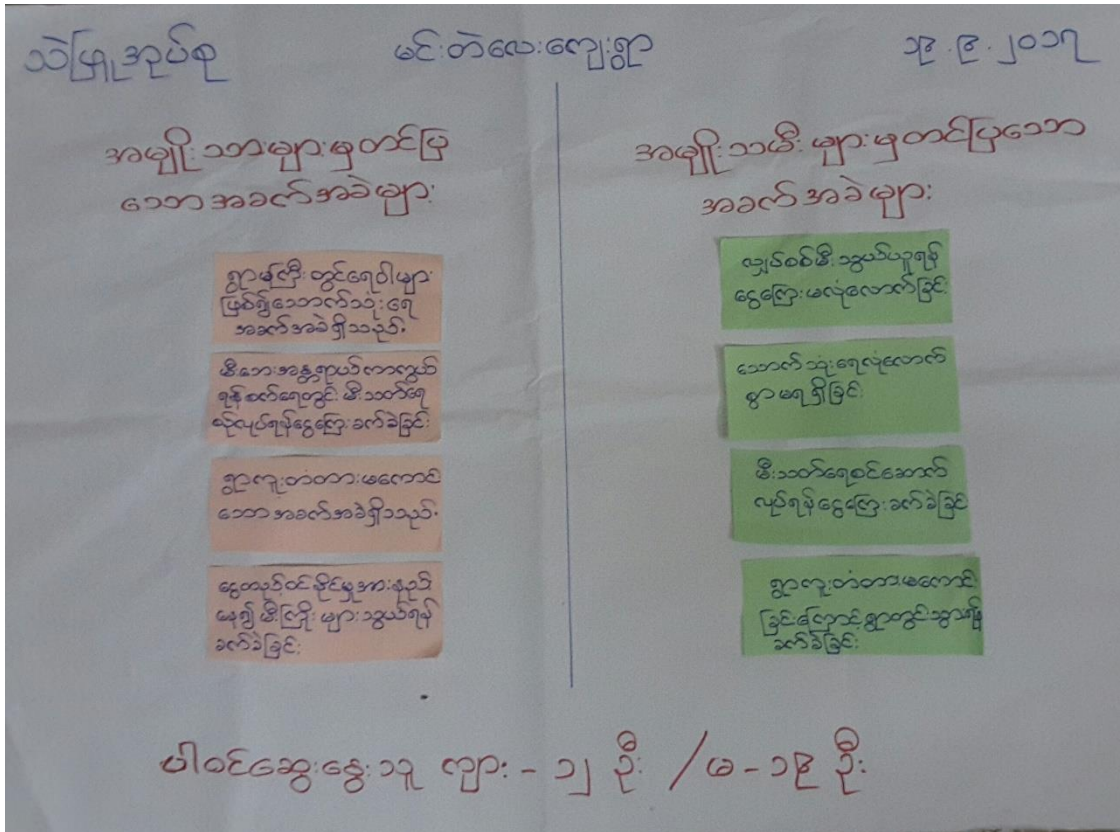 သဲဖြူအုပ်စု
မင်းတဲလေးကျေးရွာ
၁၉.၉.၂၀၁၇
အမျိုးသားများမှတင်ပြ
သောအခက်အခဲများ
ရွာမကြီးတွင်ရေဝါများ
ဖြစ်၍သောက်သုံးရေ
အခက်အခဲရှိသည်။
မီးဘေးအန္တရာယ်ကာကွယ်
ရန်စက်ရေတွင်း မီးသတ်ရေ
လုပ်ရန်ငွေကြေးခက်ခဲခြင်း
ရွာကူးတံတားမကောင်း
သောအခက်အခဲရှိသည်။
ငွေတည်ဝင်နိုင်မှုအားနည်း
နေ၍မီးကြိုးများသွယ်ရန်
ခက်ခဲခြင်း
အမျိုးသမီးများမှတင်ပြသော
အခက်အခဲများ
လျှပ်စစ်မီးသွယ်ယူရန်
ငွေကြေးမလုံလောက်ခြင်း
သောက်သုံးရေလုံလောက်
စွာမရရှိခြင်း
မီးသတ်ရေစင်ဆောက်
လုပ်ရန်ငွေကြေးခက်ခဲခြင်း
ရွာကူးတံတားမကောင်း
ခြင်းကြောင့်ရွာတွင်းသွားရန်
ခက်ခဲခြင်း
ပါဝင်ဆွေးနွေးသူ ကျား - ၁၂ ဦး / မ - ၁၉ ဦး